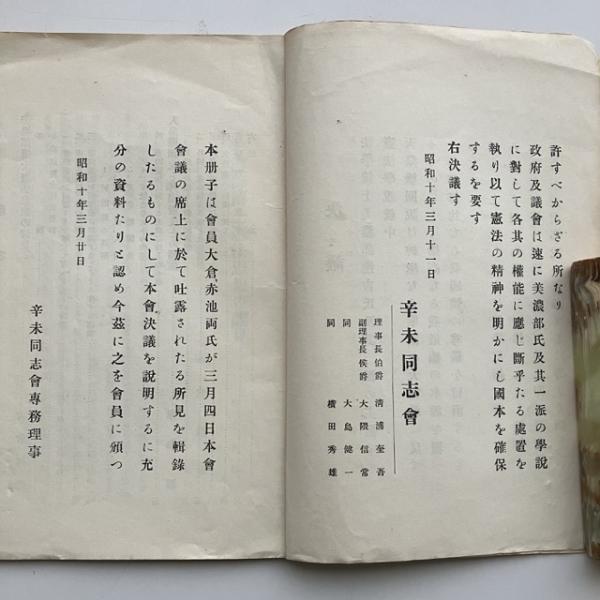 許すべからざる所なり
政府及議會は速に美濃部氏及其一派の學說
に對して各其の權能に應じ斷乎たる處置を
執り以て憲法の精神を明かにし國本を確保
するを要す
右決議す
昭和十年三月十一日
辛未同志會
理事長伯爵 淸浦奎吾
副理事長侯爵 大隈信常
同 大島健一
同 橫田秀雄
本册子は會員大倉、赤池兩氏が三月四日本會
會議の席上に於て吐露されたる所見を輯錄
したるものにして本會決議を說明するに充
分の資料たりと認め今茲に之を會員に頒つ
昭和十年三月廿日
辛未同志會專務理事